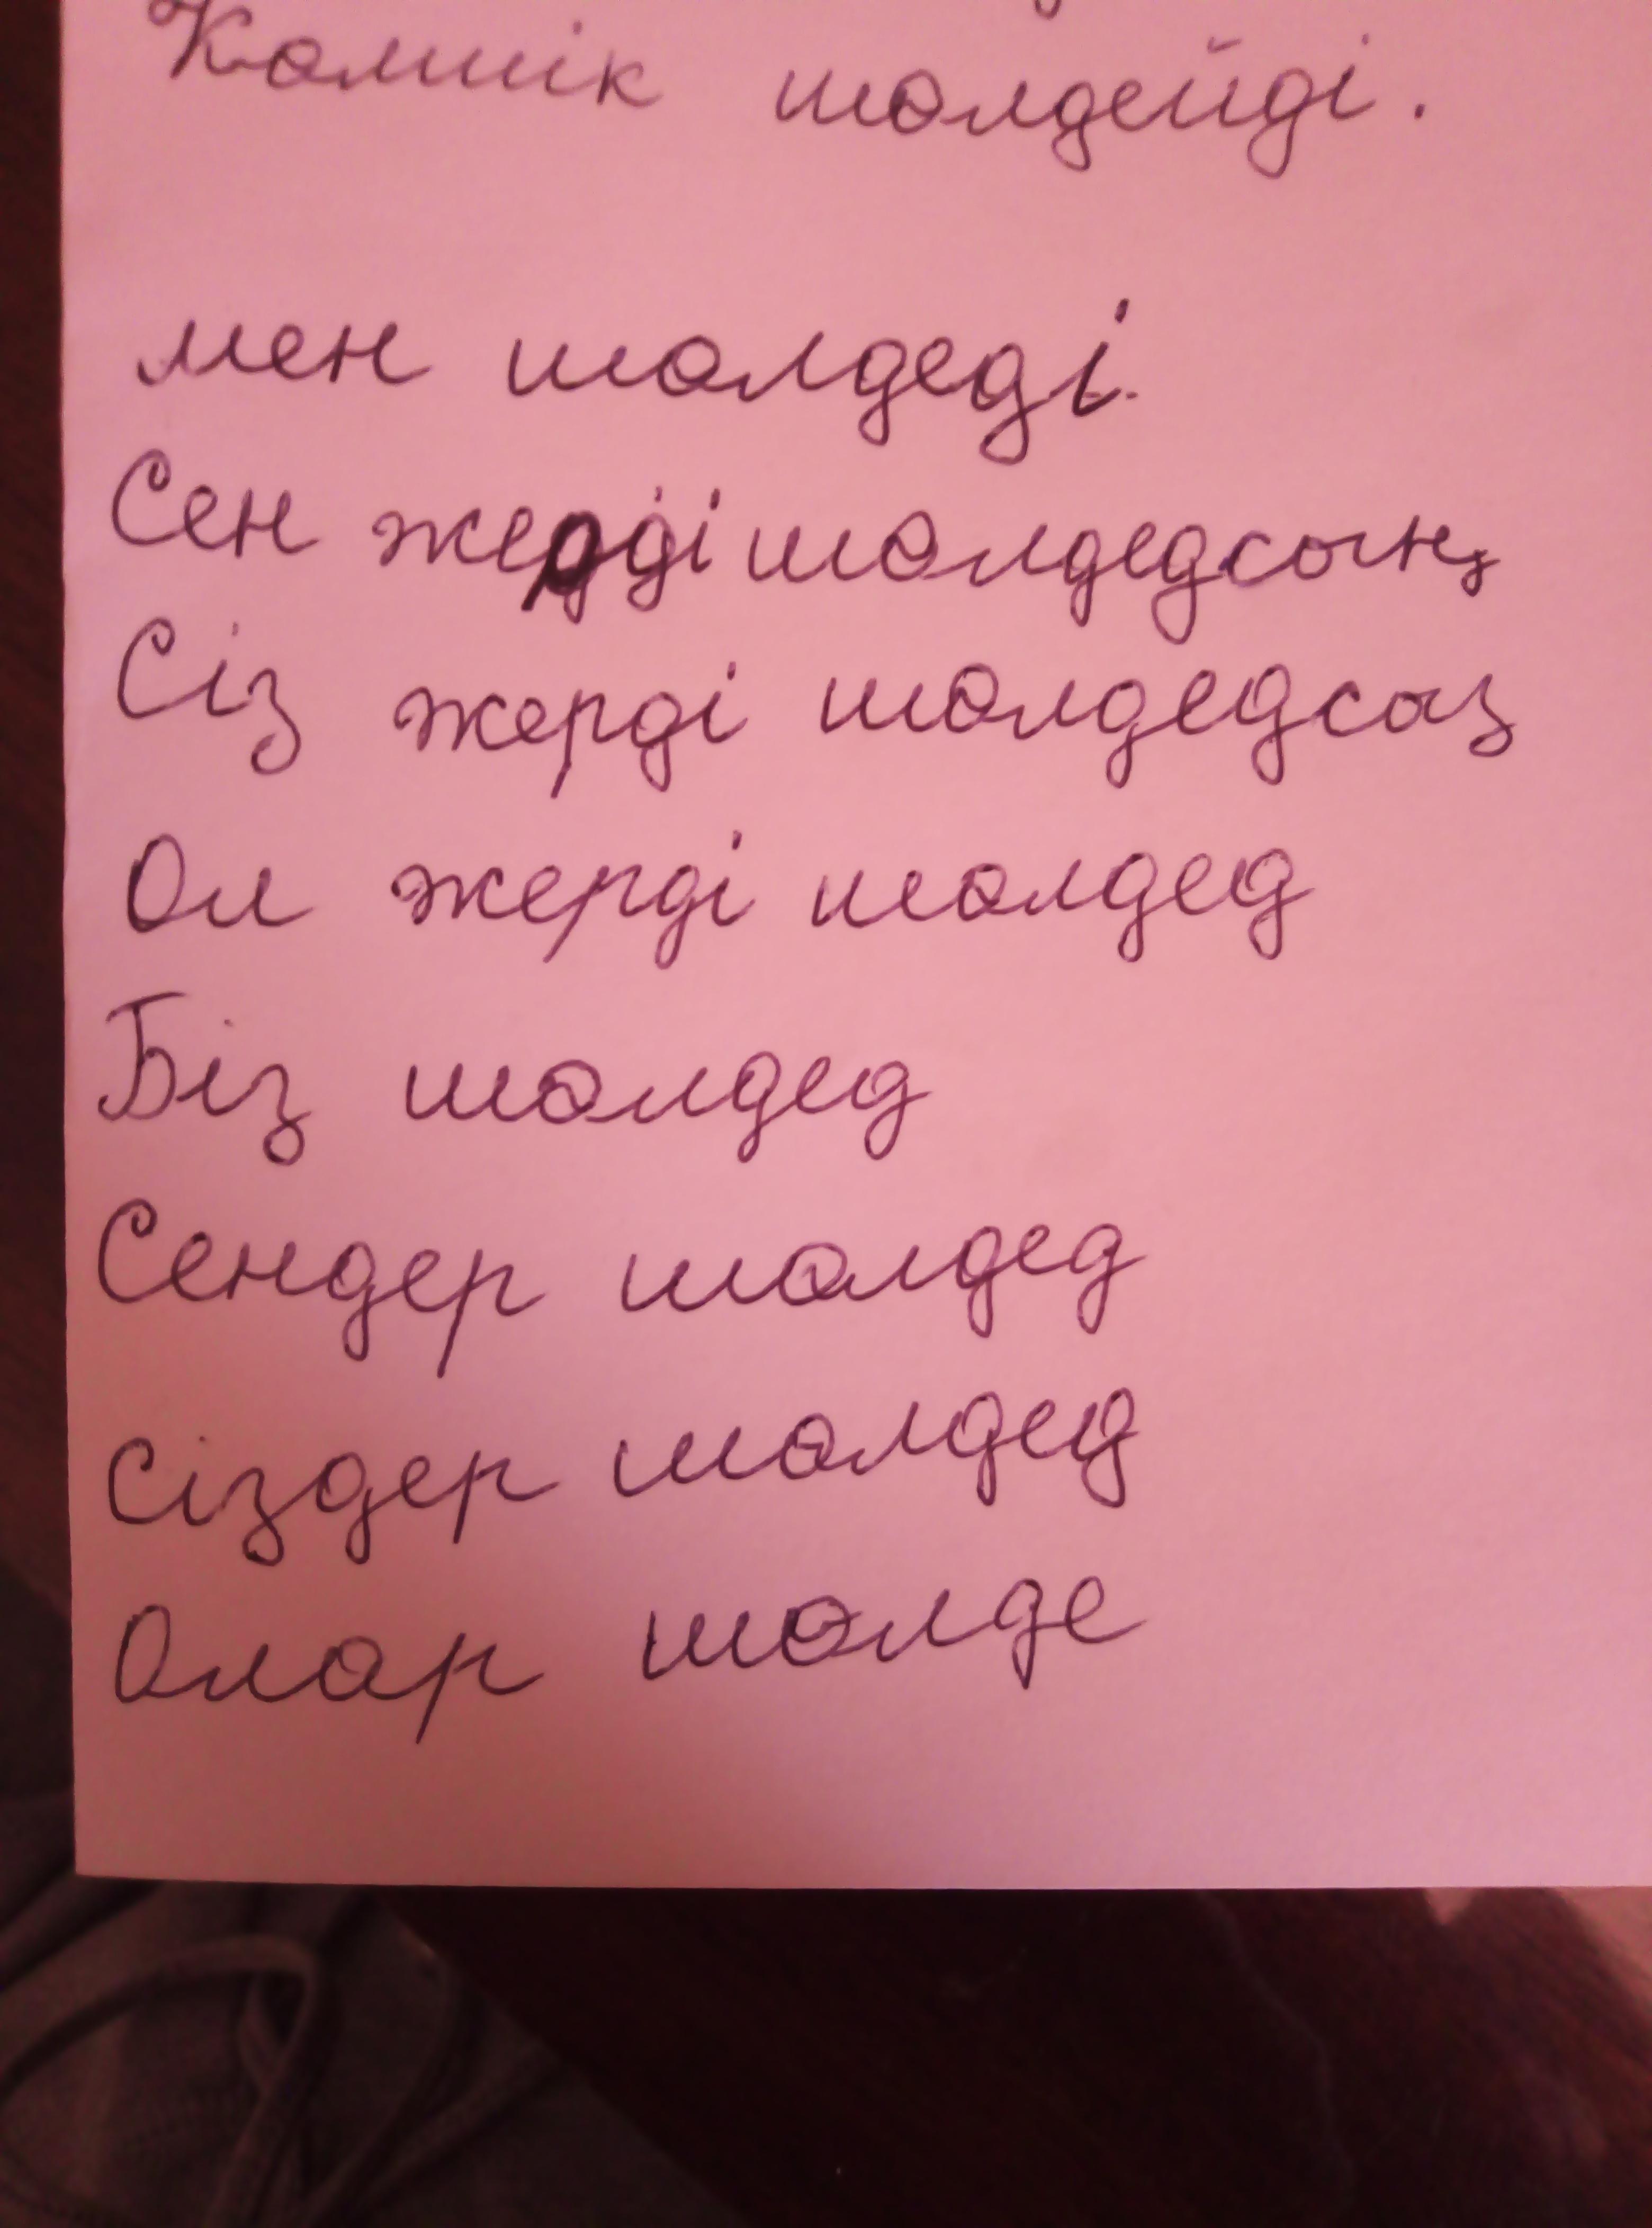 Көлшік шөлдейді.
мен шөлдеді.
Сен жерді шөлдедсың
Сіз жерді шөлдедсыз
Ол жерді шөлдед
Біз шөлдед
Сендер шөлдед
Сіздер шөлдед
Олар шөлде